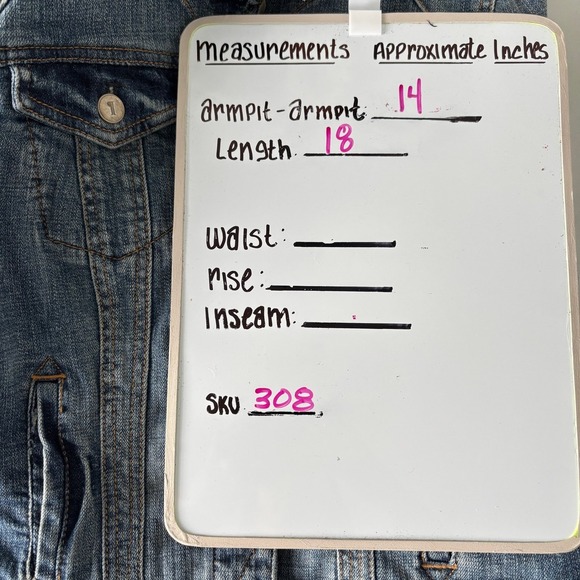 measurements Approximate Inches
armpit-armpit 14
Length 18
waist:
rise:
inseam:
SKU 308